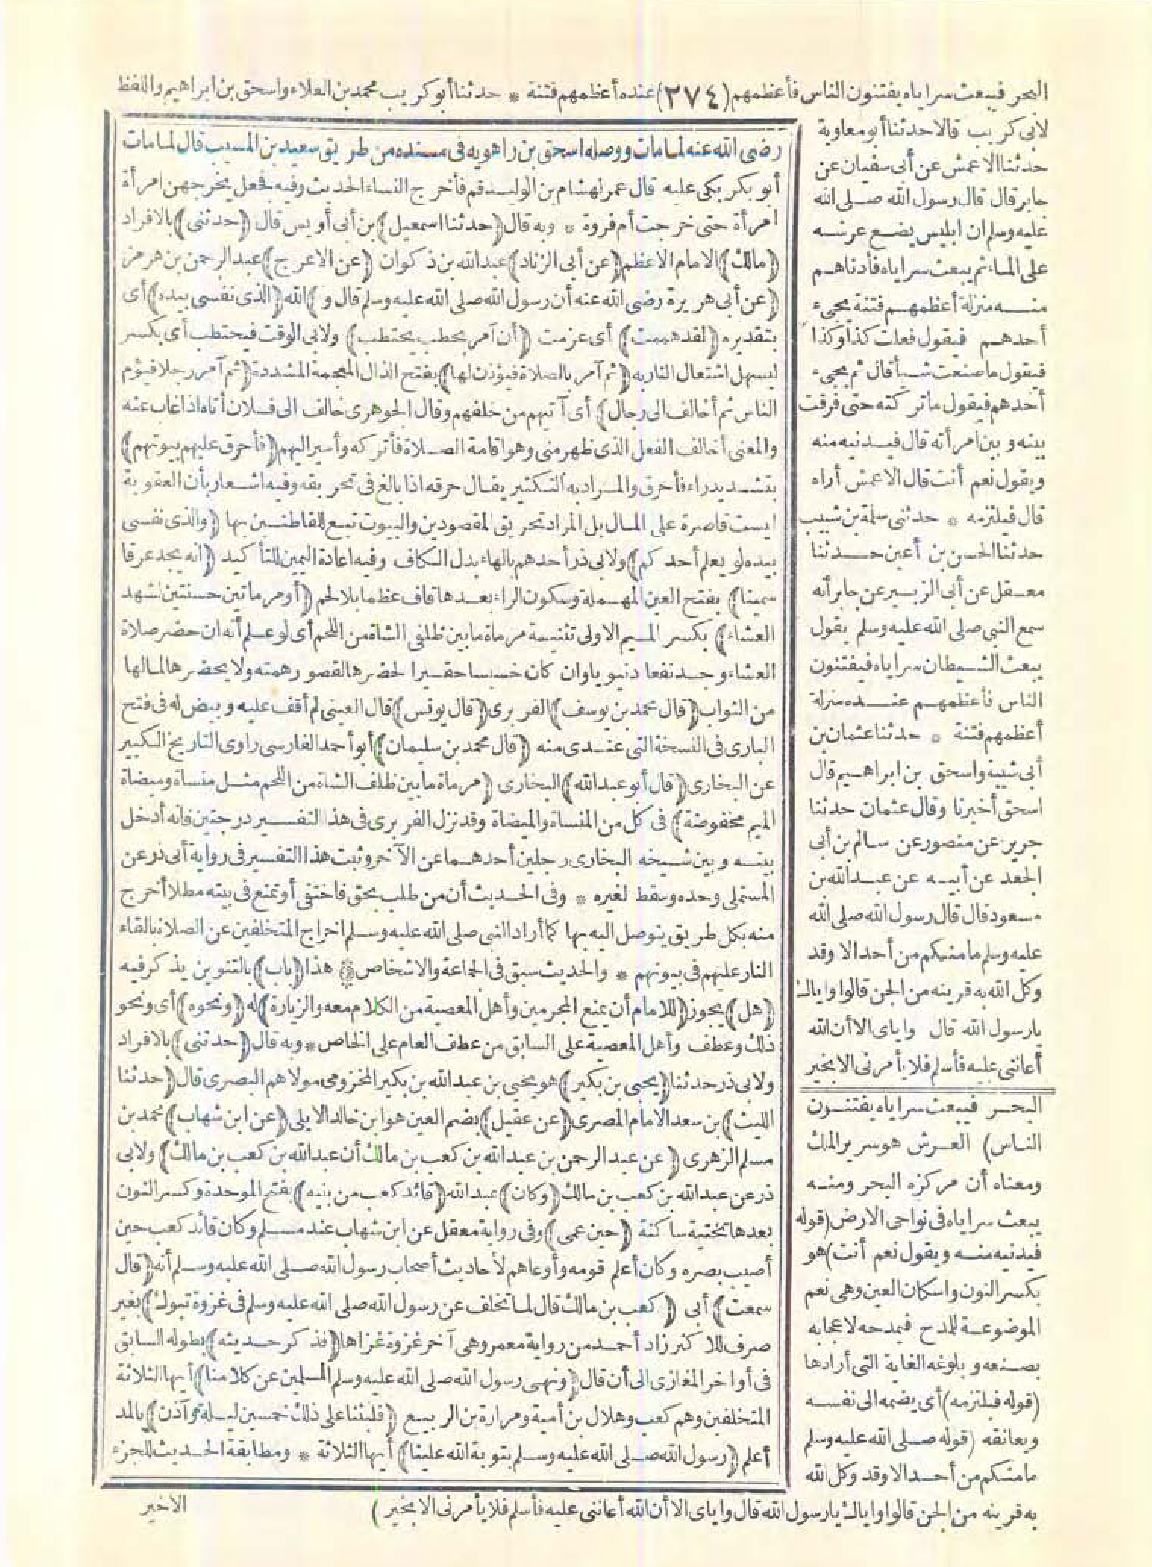 البحر فيبعث سراياه يفتنون الناس فأعظمهم (٢٧٤) عنده أعظمهم فتنة * حدثنا أبو كريب محمد بن العلاء واسحق بن ابراهيم واللفظ
لابى كريب قالا حدثنا أبو معاوية
حدثنا الاعمش عن أبى سفيان عن
جابر قال قال رسول الله صلى الله
عليه وسلم ان ابليس يضع عرشه
على الماء ثم يبعث سراياه فأدناهم
منه منزلة أعظمهم فتنة يجىء
أحدهم فيقول فعلت كذا وكذا
فيقول ما صنعت شيأ قال ثم يجىء
أحدهم فيقول ما تركته حتى فرقت
بينه وبين امرأته قال فيدنيه منه
ويقول نعم أنت قال الاعمش أراه
قال فيلتزمه * حدثنى سلمة بن شبيب
حدثنا الحسن بن أعين حدثنا
معقل عن أبى الزبير عن جابر أنه
سمع النبى صلى الله عليه وسلم يقول
يبعث الشيطان سراياه فيفتنون
الناس فأعظمهم عنده منزلة
أعظمهم فتنة * حدثنا عثمان بن
أبى شيبة واسحق بن ابراهيم قال
اسحق أخبرنا وقال عثمان حدثنا
جرير عن منصور عن سالم بن أبى
الجعد عن أبيه عن عبد الله بن
مسعود قال قال رسول الله صلى الله
عليه وسلم ما منكم من أحد الا وقد
وكل الله به قرينه من الجن قالوا واياك
يارسول الله قال واياى الا أن الله
أعاننى عليه فأسلم فلا يأمرنى الا بخير
البحر فيبعث سراياه يفتنون
الناس) العرش هو سرير الملك
ومعناه أن مركزه البحر ومنه
يبعث سراياه فى نواحى الارض (قوله
فيدنيه منه ويقول نعم أنت) هو
بكسر النون واسكان العين وهى نعم
الموضوعة للمدح فيمدحه لاعجابه
بصنعه وبلوغه الغاية التى أرادها
(قوله فيلتزمه) أى يضمه الى نفسه
ويعانقه (قوله صلى الله عليه وسلم
ما منكم من أحد الا وقد وكل الله
به قرينه من الجن قالوا واياك يارسول الله قال واياى الا أن الله أعاننى عليه فأسلم فلا يأمرنى الا بخير)
رضى الله عنه لما مات ووصله اسحق بن راهويه فى مسنده من طريق سعيد بن المسيب قال لما مات
أبو بكر بكى عليه قال عمر لهشام بن الوليد قم فأخرج النساء الحديث وفيه فجعل يخرجهن امرأة
امرأة حتى خرجت أم فروة * وبه قال (حدثنا اسمعيل) بن أبى أويس قال (حدثنى) بالافراد
(مالك) الامام الاعظم (عن أبى الزناد) عبد الله بن ذكوان (عن الاعرج) عبد الرحمن بن هرمز
(عن أبى هريرة رضى الله عنه أن رسول الله صلى الله عليه وسلم قال و) الله (الذى نفسى بيده) أى
بتقديره (لقد هممت) أى عزمت (أن آمر بحطب يحتطب) ولابى الوقت فيحتطب أى يكسر
ليسهل اشتعال النار به (ثم آمر بالصلاة فيؤذن لها) بفتح الذال المعجمة المشددة (ثم آمر رجلا فيؤم
الناس ثم أخالف الى رجال) أى آتيهم من خلفهم وقال الجوهرى خالف الى فلان أتاه اذا غاب عنه
والمعنى أخالف الفعل الذى ظهر منى وهو اقامة الصلاة فأتركه وأسير اليهم (فأحرق عليهم بيوتهم)
بتشديد راء فأحرق والمراد به التكثير يقال حرقه اذا بالغ فى تحريقه وفيه اشعار بأن العقوبة
ليست قاصرة على المال بل المراد تحريق المقصودين والبيوت تبع للقاطنين بها (والذى نفسى
بيده لو يعلم أحدكم) ولابى ذر أحدهم بالهاء بدل الكاف وفيه اعادة اليمين للتأكيد (أنه يجد عرقا
سمينا) بفتح العين المهملة وسكون الراء بعدها قاف عظما بلا لحم (أو مرماتين حسنتين لشهد
العشاء) بكسر الميم الاولى تثنية مرماة ما بين ظلفى الشاة من اللحم أى لو علم أنه ان حضر صلاة
العشاء وجد نفعا دنيويا وان كان خسيسا حقيرا لحضرها لقصور همته ولا يحضرها لما لها
من الثواب (قال محمد بن يوسف) الفربرى (قال يونس) قال العينى لم أقف عليه وبيض له فى فتح
البارى فى النسخة التى عندى منه (قال محمد بن سليمان) أبو أحمد الفارسى راوى التاريخ الكبير
عن البخارى (قال أبو عبد الله) البخارى (مرماة ما بين ظلف الشاة من اللحم مثل منساة وميضاة
الميم مخفوضة) فى كل من المنساة والميضاة وقد نزل الفربرى فى هذا التفسير درجتين فانه أدخل
بينه وبين شيخه البخارى رجلين أحدهما عن الآخر وثبت هذا التفسير فى رواية أبى ذر عن
المستملى وحده وسقط لغيره * وفى الحديث أن من طلب بحق فاختفى أو تمنع فى بيته مطلا أخرج
منه بكل طريق يتوصل اليه بها كما أراد النبى صلى الله عليه وسلم اخراج المتخلفين عن الصلاة بالقاء
النار عليهم فى بيوتهم * والحديث سبق فى الجماعة والاشخاص هذا (باب) بالتنوين يذكر فيه
(هل) يجوز (للامام أن يمنع المجرمين وأهل المعصية من الكلام معه والزيارة) له (ونحوه) أى ونحو
ذلك وعطف وأهل المعصية على السابق من عطف العام على الخاص * وبه قال (حدثنى) بالافراد
ولابى ذر حدثنا (يحيى بن بكير) هو يحيى بن عبد الله بن بكير المخزومى مولاهم البصرى قال (حدثنا
الليث) بن سعد الامام المصرى (عن عقيل) بضم العين هو ابن خالد الايلى (عن ابن شهاب) محمد بن
مسلم الزهرى (عن عبد الرحمن بن عبد الله بن كعب بن مالك أن عبد الله بن كعب بن مالك) ولابى
ذر عن عبد الله بن كعب بن مالك (وكان) عبد الله (قائد كعب من بنيه) بفتح الموحدة وكسر النون
بعدها تحتية ساكنة (حين عمى) وفى رواية معقل عن ابن شهاب عند مسلم وكان قائد كعب حين
أصيب بصره وكان أعلم قومه وأوعاهم لأحاديث أصحاب رسول الله صلى الله عليه وسلم أنه (قال
سمعت) أبى (كعب بن مالك قال لما تخلف عن رسول الله صلى الله عليه وسلم فى غزوة تبوك) بغير
صرف للاكثر زاد أحمد من رواية معمر وهى آخر غزوة غزاها (فذكر حديثه) بطوله السابق
فى أواخر المغازى الى أن قال (ونهى رسول الله صلى الله عليه وسلم المسلمين عن كلامنا) أيها الثلاثة
المتخلفين وهم كعب وهلال بن أمية ومرارة بن الربيع (فلبثنا على ذلك خمسين ليلة وآذن) بالمد
أعلم (رسول الله صلى الله عليه وسلم بتوبة الله علينا) أيها الثلاثة * ومطابقة الحديث للجزء
الاخير